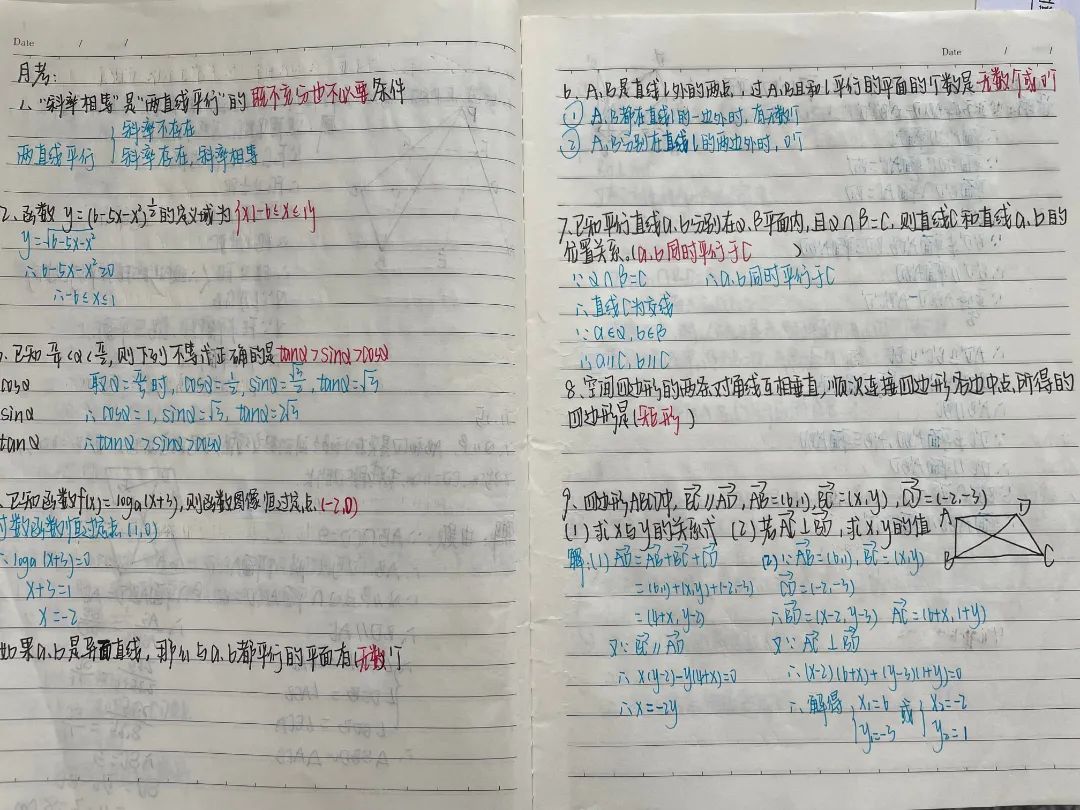 Date / /
月考:
1、"斜率相等"是"两直线平行"的既不充分也不必要条件
斜率不存在
两直线平行 斜率存在,斜率相等
2、函数 y=(6-5x-x²)^½的定义域为{x|-6≤x≤1}
y=√6-5x-x²
∴6-5x-x²≥0
∴-6≤x≤1
、已知 <α<π/2,则下列不等式正确的是tanα>sinα>cosα
cosα 取α=π/3时, cosα=1/2, sinα=√3/2, tanα=√3
sinα ∴cosα=1, sinα=√3, tanα=2√3
tanα ∴tanα>sinα>cosα
、已知函数f(x)=loga(x+3),则函数图像恒过定点(-2,0)
对数函数恒过定点(1,0)
∴loga(x+3)=0
x+3=1
x=-2
如果a、b是异面直线,那么与a、b都平行的平面有(无数)个
Date / /
6、A、B是直线l外的两点,过A、B且和l平行的平面的个数是无数个或0个
① A、B都在直线l的一边外时,有无数个
② A、B分别在直线l的两边外时,0个
7、已知平行直线a、b分别在α、β平面内,且α∩β=C,则直线C和直线a、b的
位置关系。(a、b同时平行于C )
∵α∩β=C ∴a、b同时平行于C
∴直线C为交线
∵a∈α,b∈β
∴a∥C,b∥C
8、空间四边形的两条对角线互相垂直,顺次连接四边形各边中点,所得的
四边形是(矩形)
9、四边形ABCD中,BC∥AD,AB=(6,1),BC=(x,y),CD=(-2,-3)
(1)求x与y的关系式 (2)若AC⊥BD,求x、y的值
A D
B C
解:(1)AD=AB+BC+CD (2)∵AB=(6,1),BC=(x,y)
=(6,1)+(x,y)+(-2,-3) CD=(-2,-3)
=(4+x,y-2) ∴BD=(x-2,y-3) AC=(6+x,1+y)
又∵BC∥AD 又∵AC⊥BD
∴x(y-2)-y(4+x)=0 ∴(x-2)(6+x)+(y-3)(1+y)=0
∴x=-2y ∴解得{x₁=6 或 {x₂=-2
y₁=-3 y₂=1